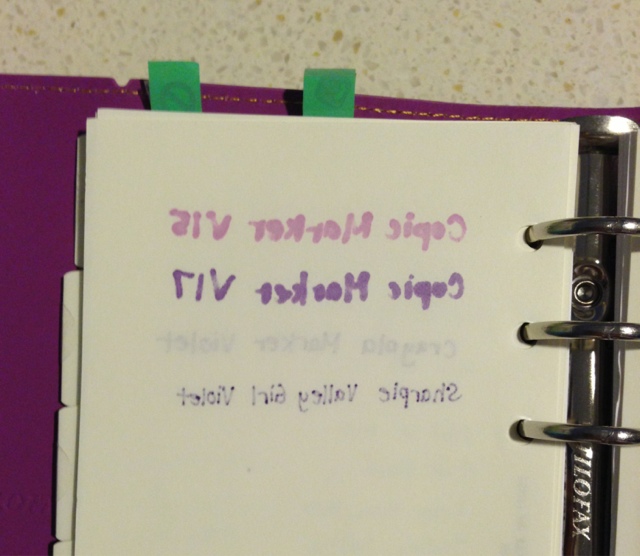 Copic Marker V15
Copic Marker V17
Crayola Marker Violet
Sharpie Valley Girl Violet
FILOFAX